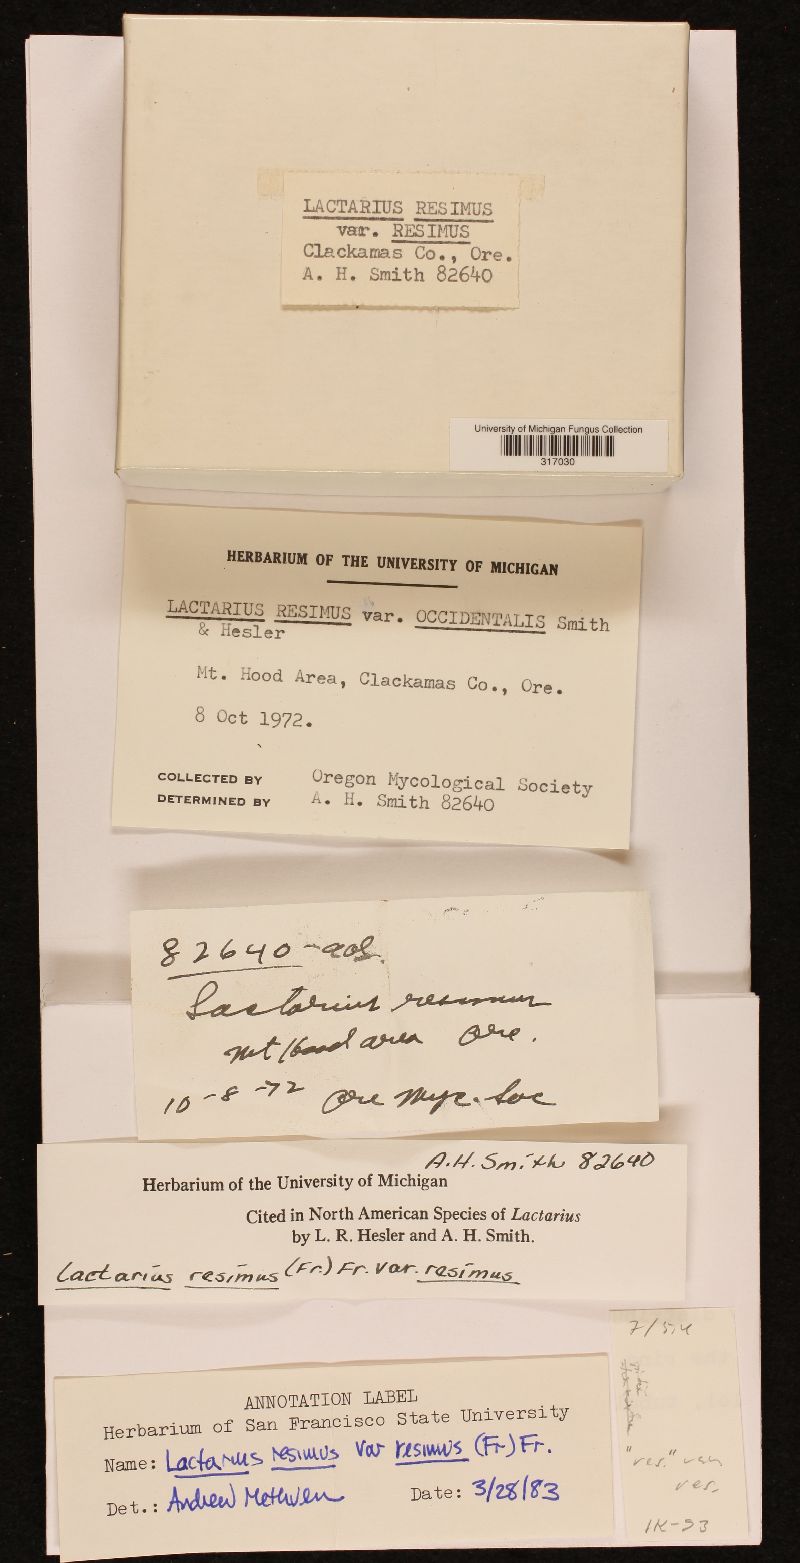 LACTARIUS RESIMUS
var. RESIMUS
Clackamas Co., Ore.
A. H. Smith 82640
University of Michigan Fungus Collection
317030
HERBARIUM OF THE UNIVERSITY OF MICHIGAN
LACTARIUS RESIMUS var. OCCIDENTALIS Smith
& Hesler
Mt. Hood Area, Clackamas Co., Ore.
8 Oct 1972.
COLLECTED BY Oregon Mycological Society
DETERMINED BY A. H. Smith 82640
82640
Lactarius resimus
Mt Hood area Ore.
10-8-72 Ore Myc. Soc
A.H. Smith 82640
Herbarium of the University of Michigan
Cited in North American Species of Lactarius
by L. R. Hesler and A. H. Smith.
Lactarius resimus (Fr.) Fr. var. resimus
ANNOTATION LABEL
Herbarium of San Francisco State University
Name: Lactarius resimus var resimus (Fr) Fr.
Det.: Andrew Methven Date: 3/28/83
"res." var
res.